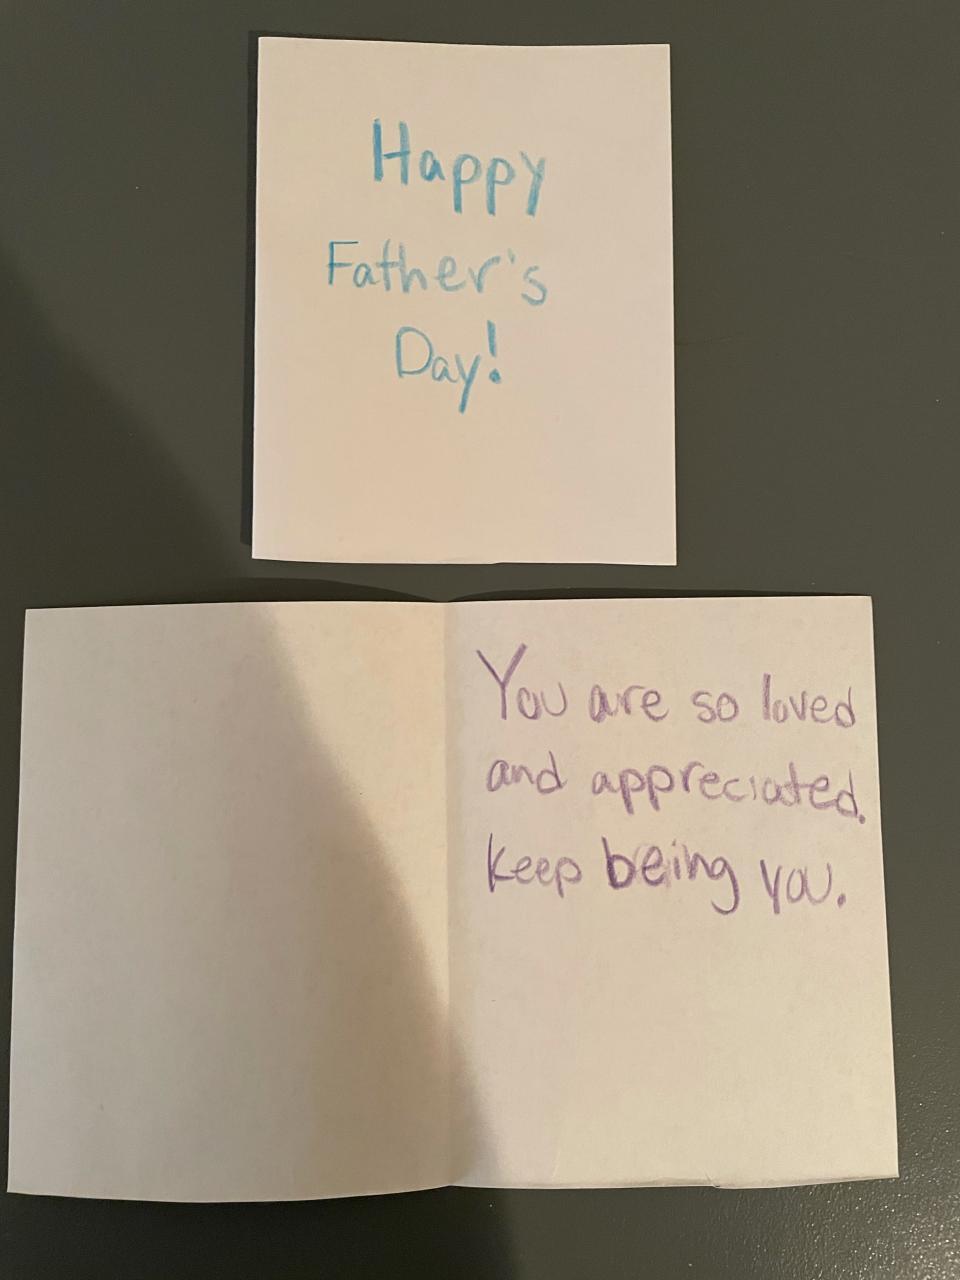 Happy
Father's
Day!
You are so loved
and appreciated.
Keep being you.